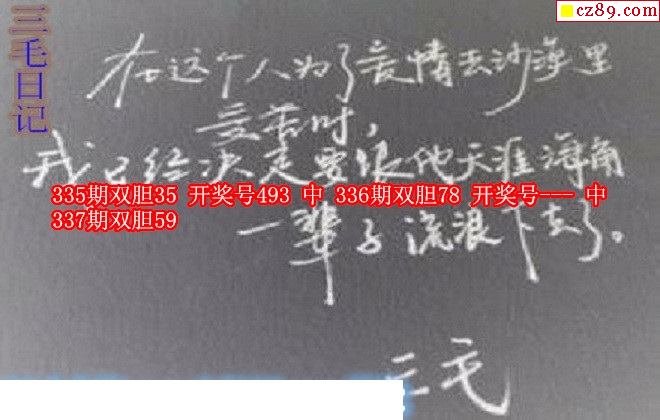 三毛日记
cz89.com
在这个人为了爱情去沙漠里
受苦时，
我已经决定要跟他天涯海角
335期双胆35 开奖号493 中 336期双胆78 开奖号--- 中
337期双胆59
一辈子流浪下去了。
三毛